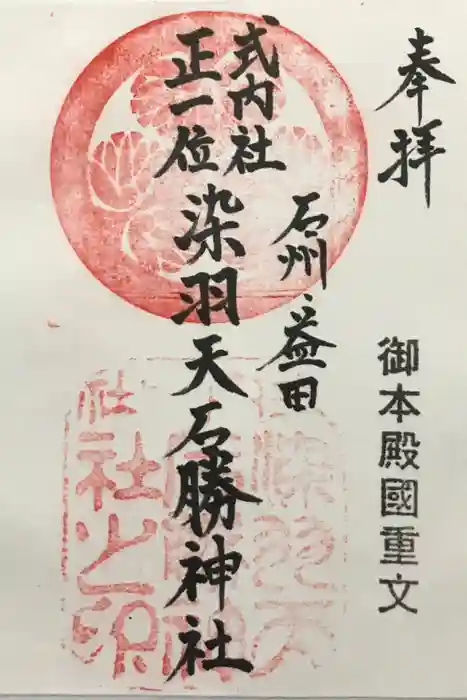 奉拝
御本殿國重文
石州・益田
式内社
正一位
染羽天石勝神社
社
社之印